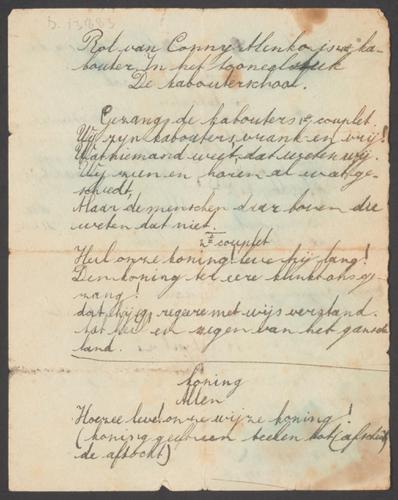 b. 13883
Rol van Conny Menko is de ka-
bouter. In het tooneelstuk
De kabouterschool.
Gezang de kabouters 1e couplet.
Wij zijn kabouters, vrank en vrij!
Wat niemand weet, dat weten wij.
Wij zien en horen al wat ge-
schudt,
Maar de menschen daar boven die
weten dat niet.
2e couplet
Heil onze koning! leve hij lang!
Den koning ter eere klinkt ons ge-
zang!
dat hij regere met wijs verstand.
tot en zegen van het gansche
land.
Koning
Allen
Hoezee leve! onze wijze koning!
(koning geeft een teeken tot (
de aftocht)